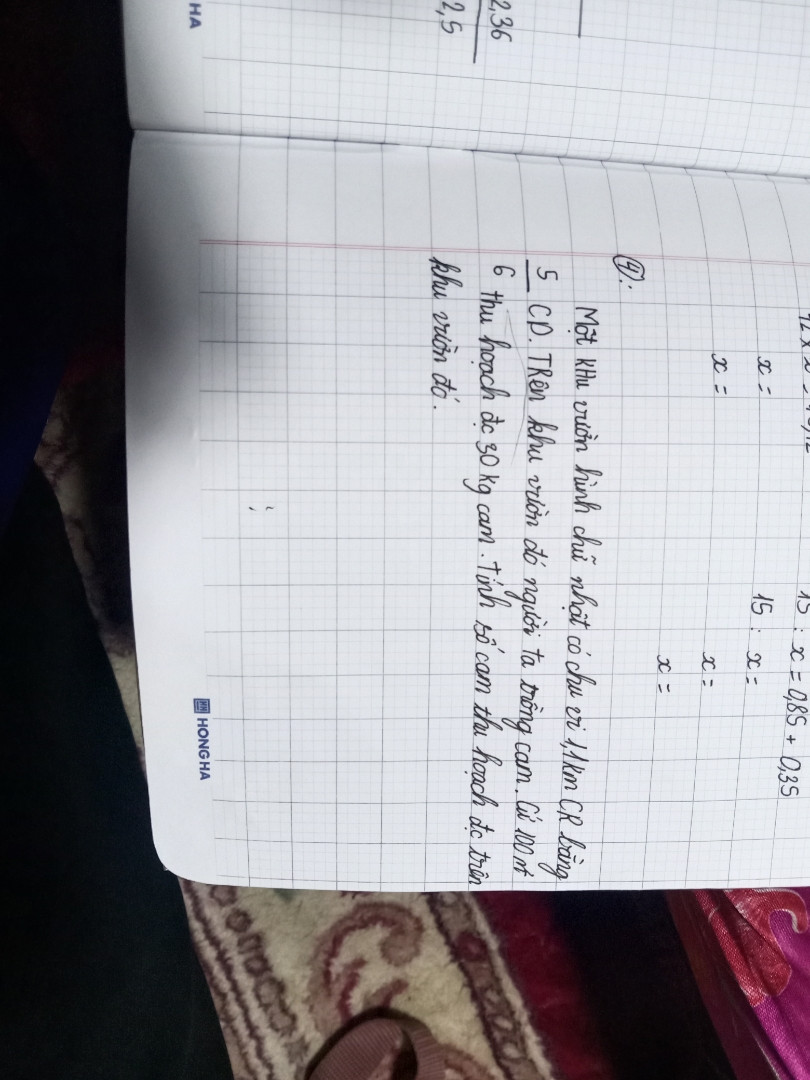 2,36
2,5
HA
15 : x = 0,85 + 0,35
x =
15 : x =
x =
x =
x =
④:
Một KHu vườn hình chữ nhật có chu vi 1,1km CR bằng
5/6 CD. TRên khu vườn đó người ta trồng cam. Cứ 100 m²
thu hoạch đc 30 kg cam. Tính số cam thu hoạch đc trên
khu vườn đó.
HONG HA